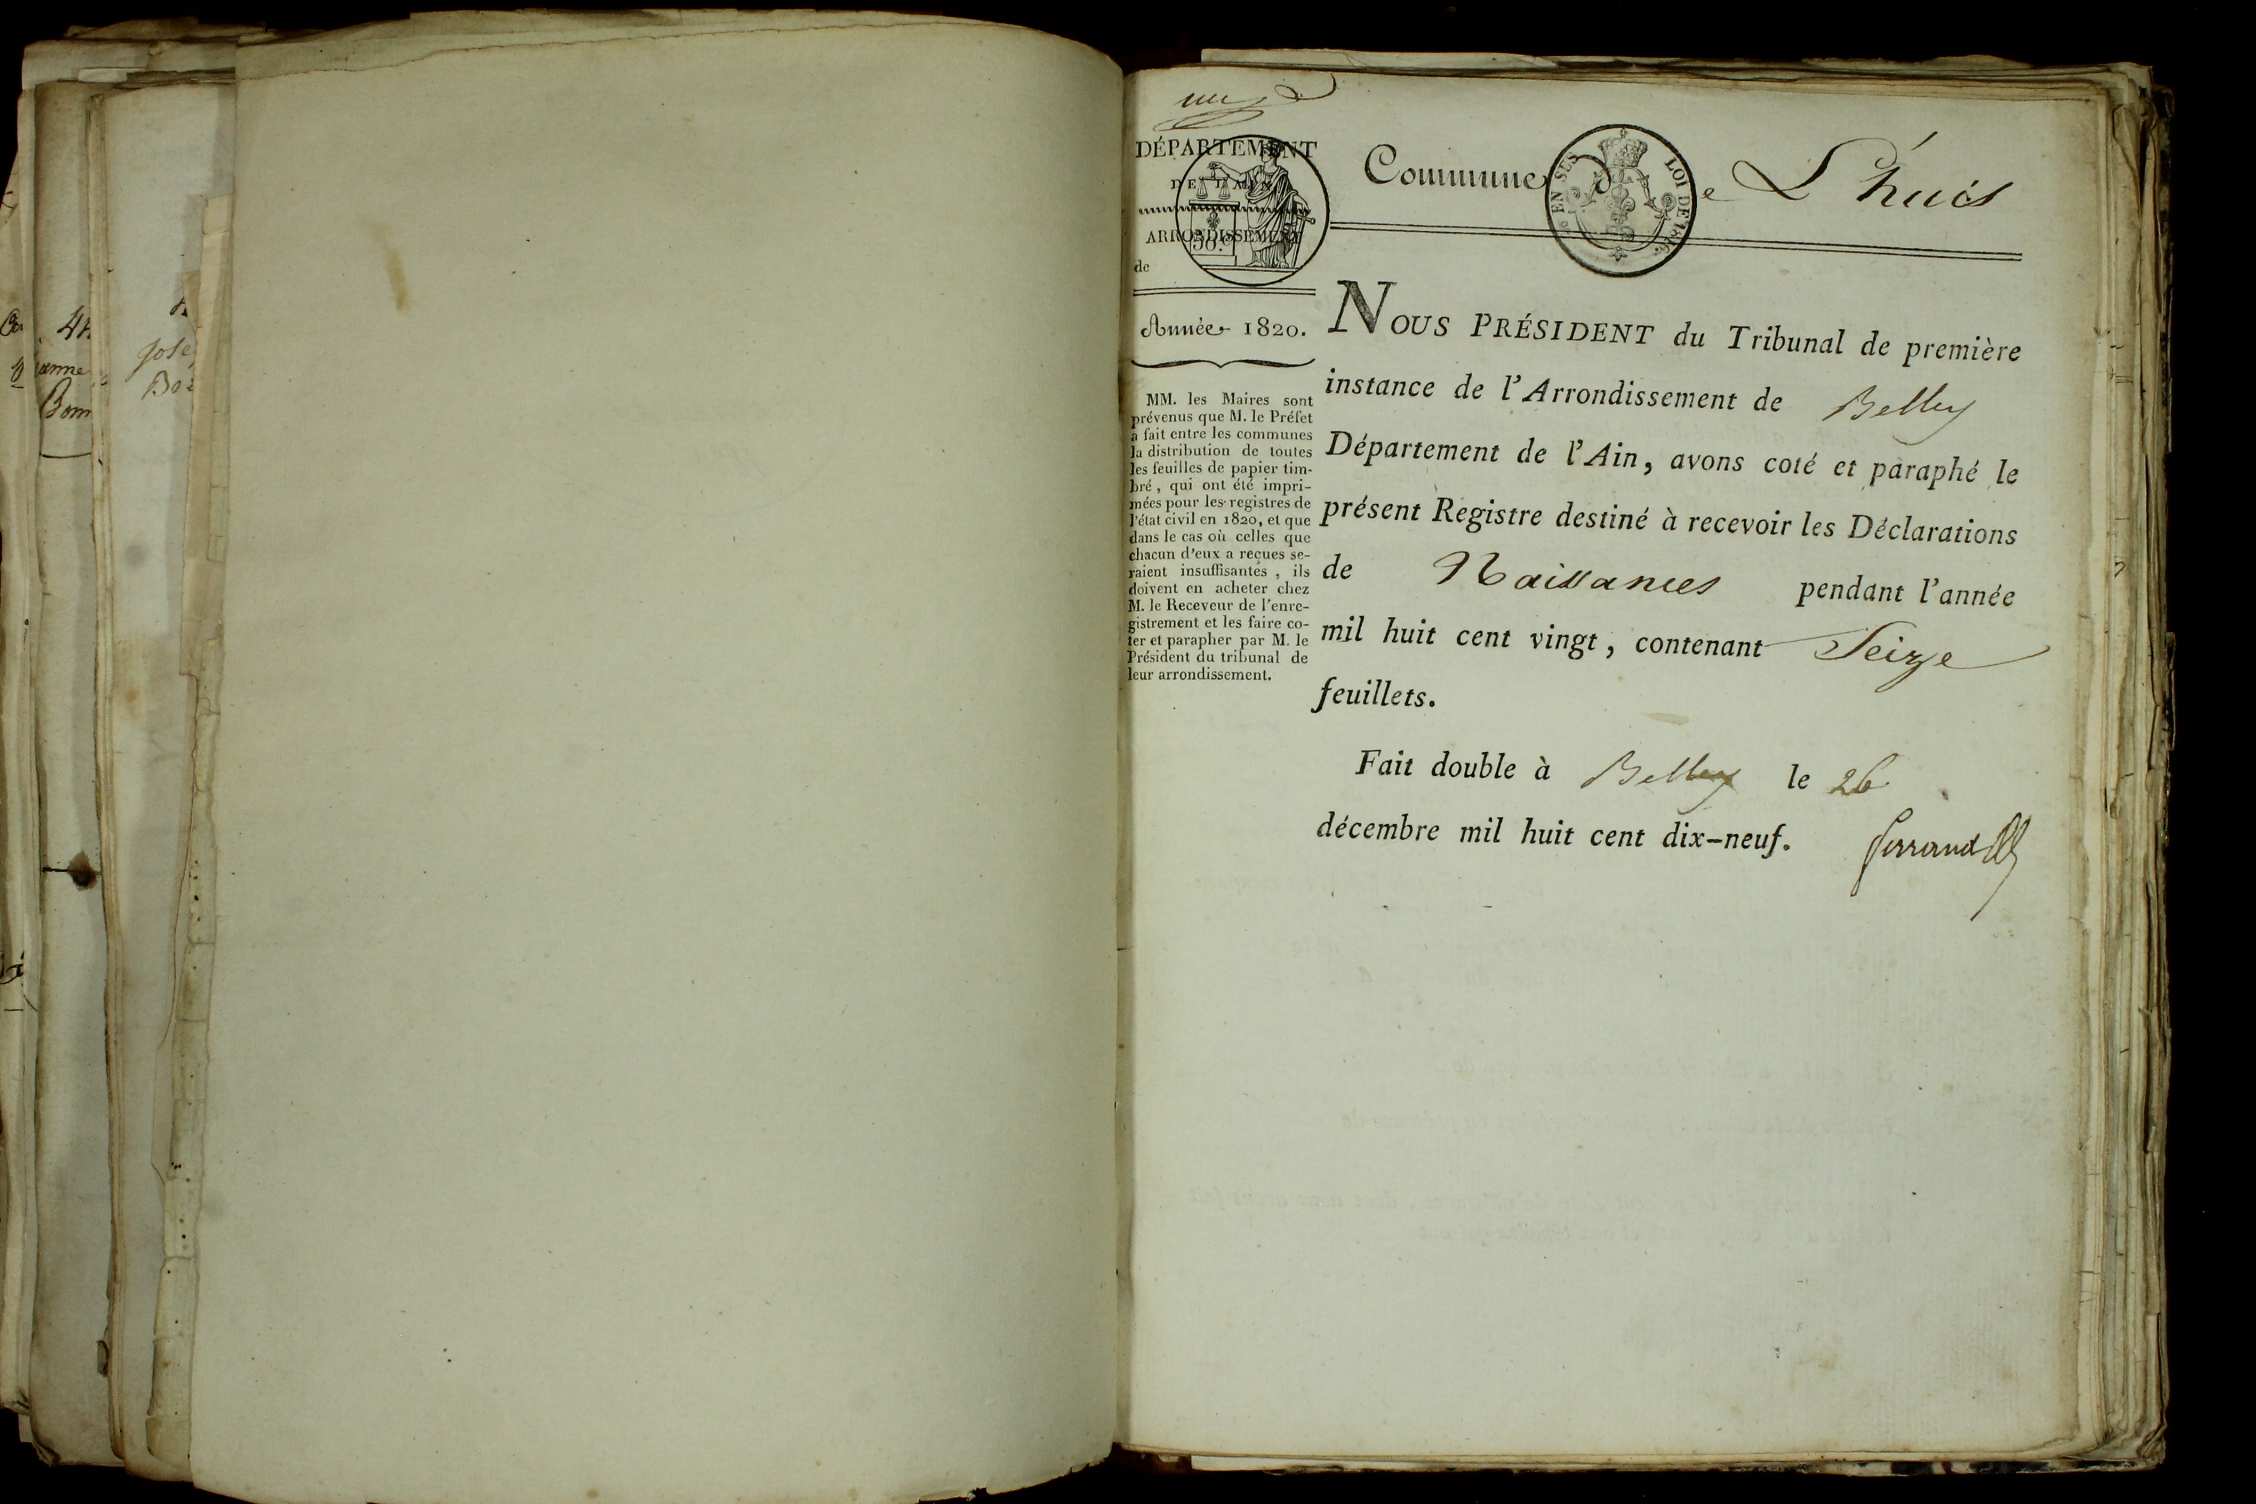 4
Bon
Jose
un
DÉPARTEMENT
DE L'AIN
ARRONDISSEMENT
de
Année 1820.
MM. les Maires sont
prévenus que M. le Préfet
a fait entre les communes
la distribution de toutes
les feuilles de papier tim-
bré, qui ont été impri-
mées pour les registres de
l'état civil en 1820, et que
dans le cas où celles que
chacun d'eux a reçues se-
raient insuffisantes, ils
doivent en acheter chez
M. le Receveur de l'enre-
gistrement et les faire co-
ter et parapher par M. le
Président du tribunal de
leur arrondissement.
Commune de L'huis
EN SES LOI DE 1816
NOUS PRÉSIDENT du Tribunal de première
instance de l'Arrondissement de Belley
Département de l'Ain, avons coté et paraphé le
présent Registre destiné à recevoir les Déclarations
de Naissances pendant l'année
mil huit cent vingt, contenant Seize
feuillets.
Fait double à Belley le 26
décembre mil huit cent dix-neuf. ferrand